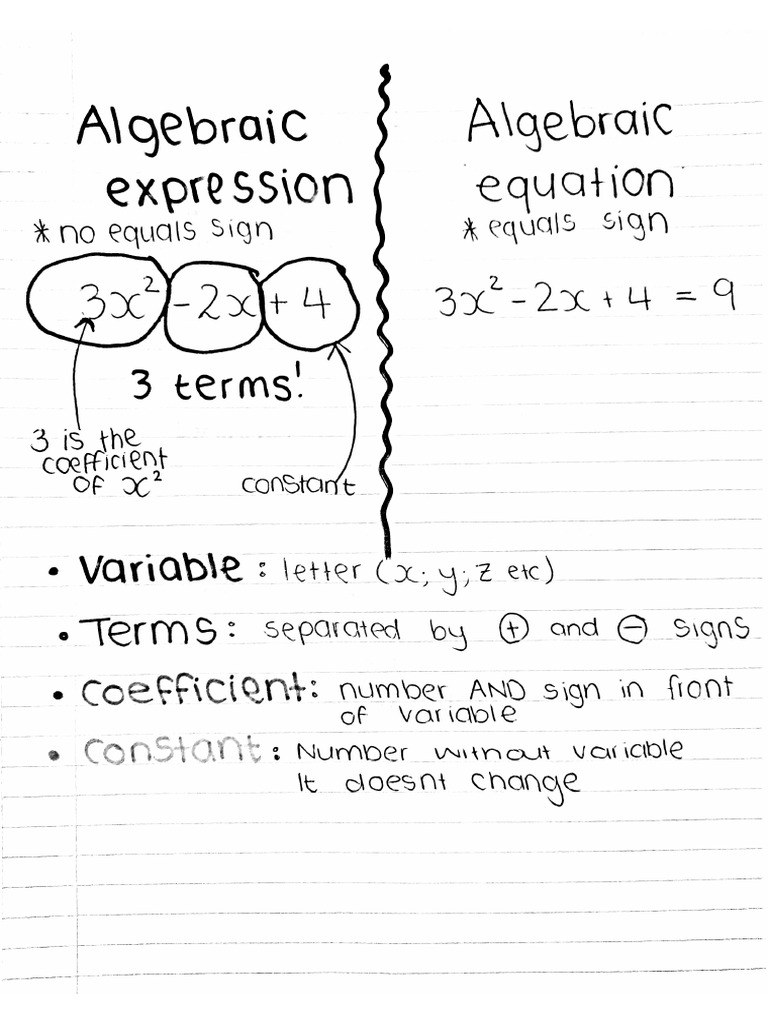 Algebraic
expression
* no equals sign
3x² - 2x + 4
3 terms!
3 is the
coefficient
of x²
constant
Algebraic
equation
* equals sign
3x² - 2x + 4 = 9
• Variable: letter (x; y; z etc)
• Terms: separated by ⊕ and ⊖ signs
• Coefficient: number AND sign in front
of variable
• Constant: Number without variable
It doesnt change